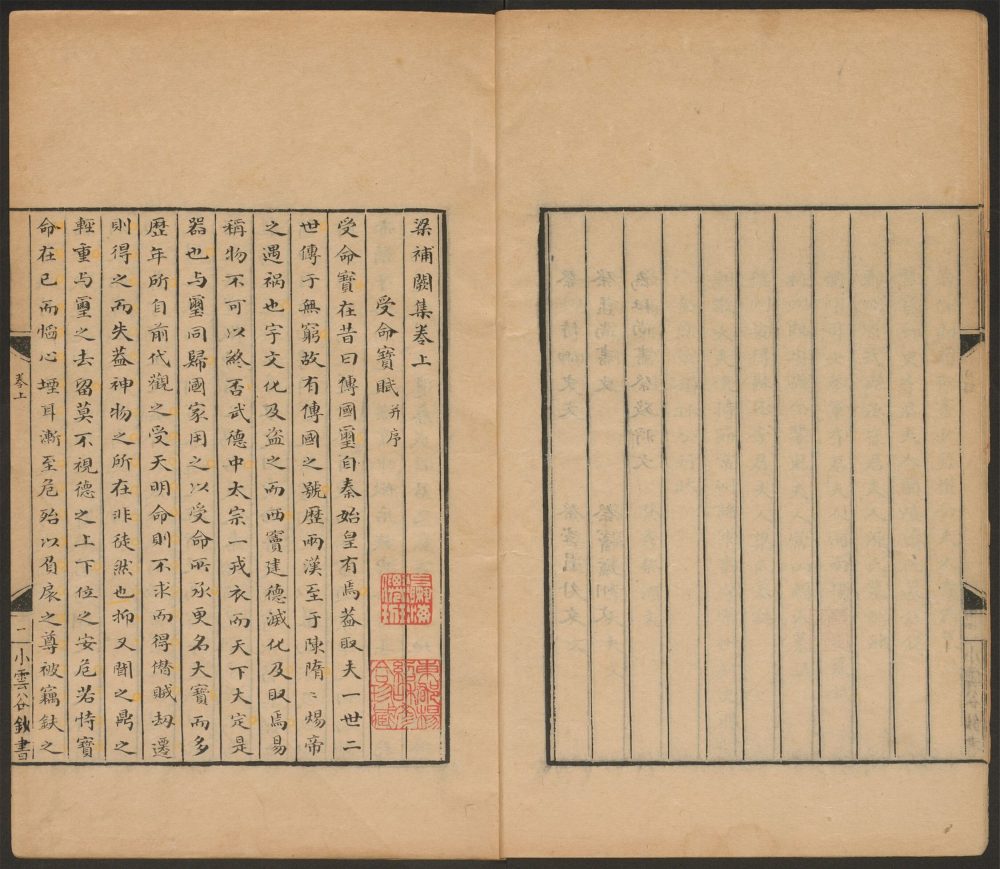 梁補闕集卷上
受命寶賦并序
受命寶在昔曰傳國璽自秦始皇有焉葢取夫一世二
世傳于無窮故有傳國之號歷兩漢至于陳隋〻煬帝
之遇禍也宇文化及盜之而西竇建德滅化及取焉易
稱物不可以終否武德中太宗一戎衣而天下大定是
器也与璽同歸國家用之以受命所承更名大寶而多
歷年所自前代觀之受天明命則不求而得僭賊刼遷
則得之而失葢神物之所在非徒然也抑又聞之鼎之
輕重与璽之去留莫不視德之上下位之安危若恃寶
命在己而慆心堙耳漸至危殆以負扆之尊被竊鈇之
卷上
一
小雲谷鈔書